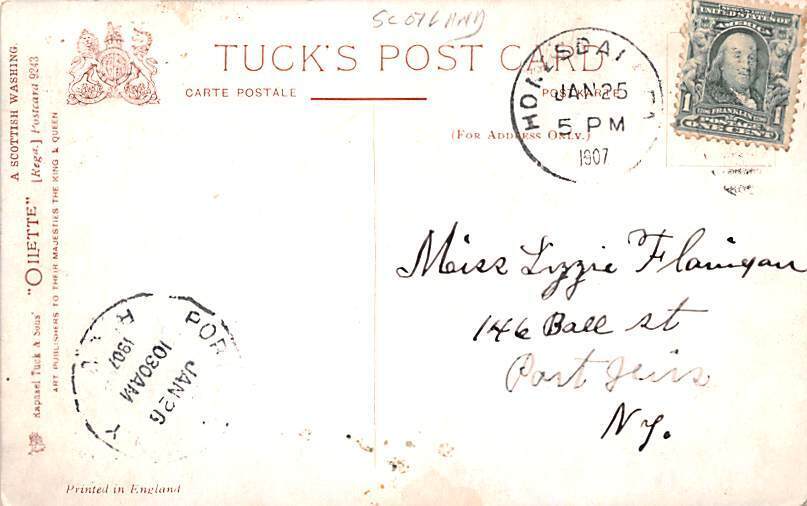 SCOTLAND
TUCK'S POST CARD
CARTE POSTALE
POSTKARTE
(FOR ADDRESS ONLY.)
HONESDALE PA
JAN 25
5 PM
1907
UNITED STATES OF
AMERICA
1 FRANKLIN 1
POSTAGE
ONE CENT
Miss Lizzie Flanigan
146 Ball st
Port Jervis
Ny.
A SCOTTISH WASHING.
[Regd.] Postcard 9243
Raphael Tuck & Sons' "OILETTE"
ART PUBLISHERS TO THEIR MAJESTIES THE KING & QUEEN
POR
JAN 26
1030AM
1907
Printed in England